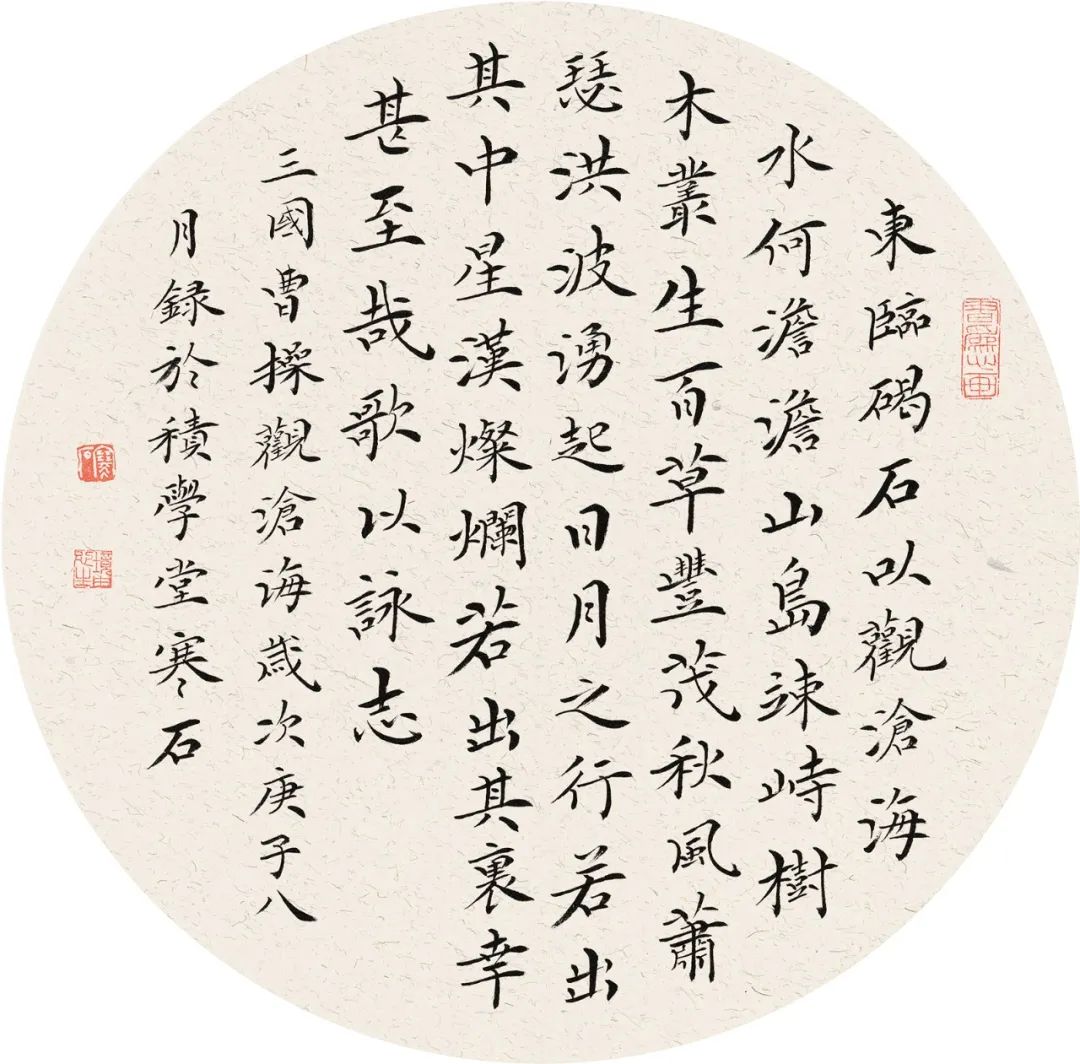 東臨碣石以觀滄海
水何澹澹山島竦峙樹
木叢生百草豐茂秋風蕭
瑟洪波湧起日月之行若出
其中星漢燦爛若出其裏幸
甚至哉歌以詠志
三國曹操觀滄海歲次庚子八
月録於積學堂寒石